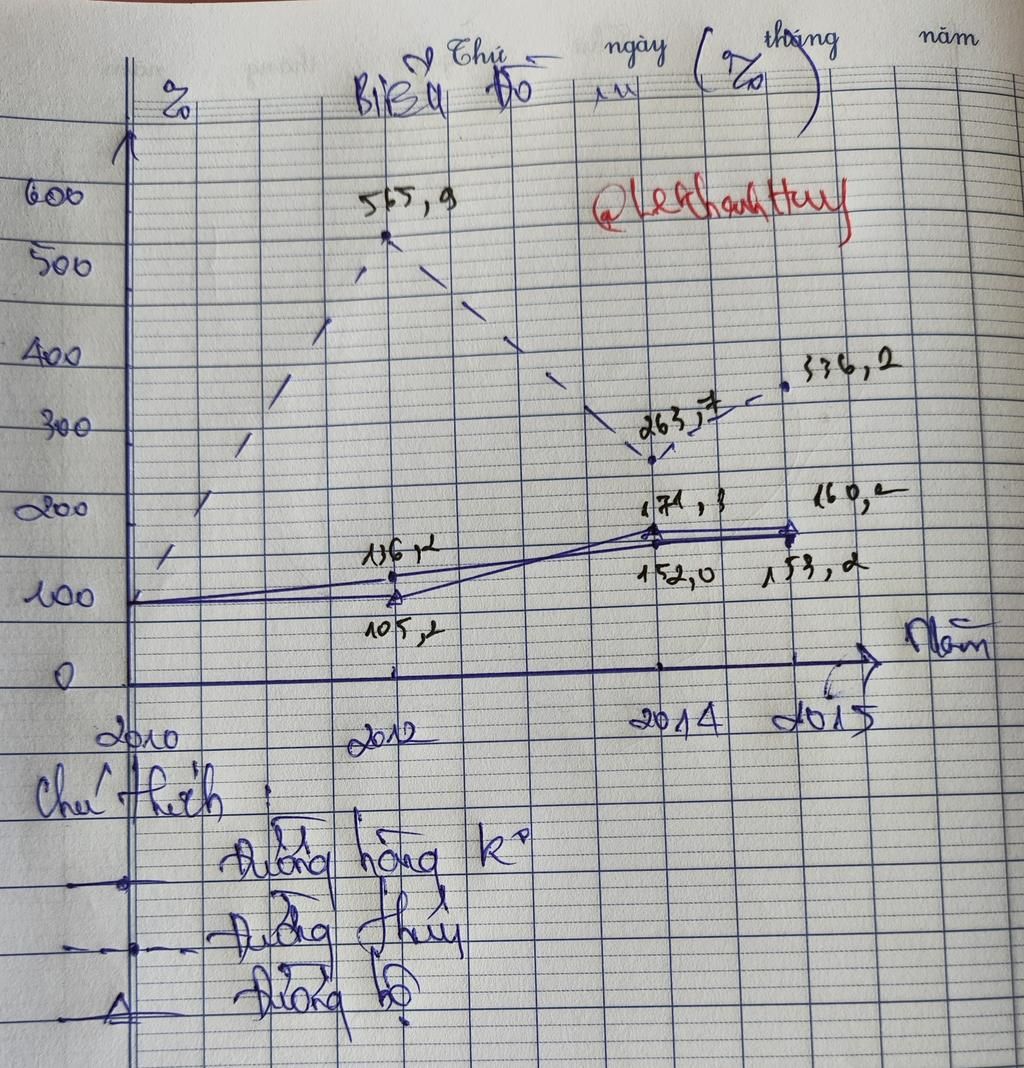 Thứ ngày tháng năm
% Biểu Đồ ... (%)
600
565,9
@LeKhanhHuy
500
400
336,2
300
263,7
200
171,3
160,2
136,2
152,0
153,2
100
105,2
0
Năm
2010
2012
2014
2015
Chú thích :
Đường hàng k°
Đường thủy
Đường bộ